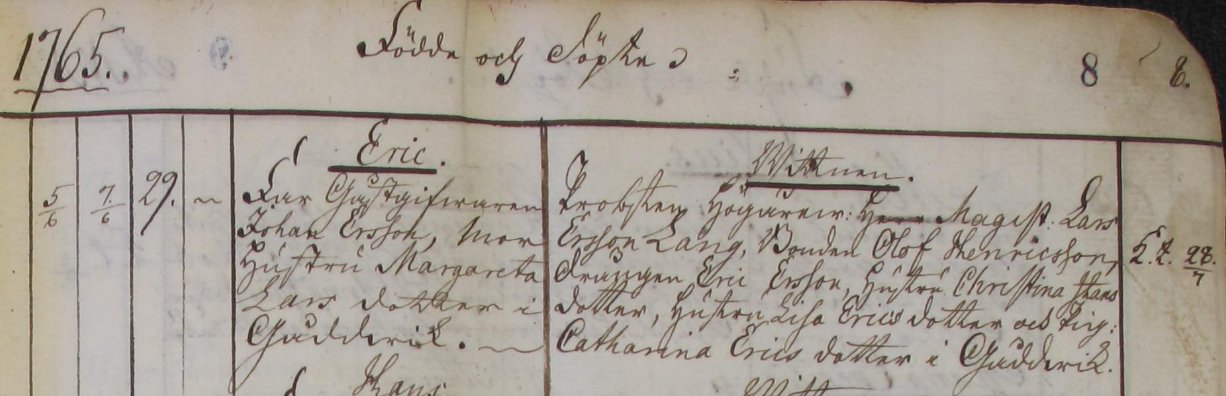 1765. Födde och Döpte 8 8.
Eric. Wittnen.
5/6 7/6 29. Far Gästgifwaren Probsten Högärew: Herr Magist. Lars
Johan Ersson, Mor Ersson Lang, Bonden Olof Henricsson, K.t. 28/7
Hustru Margareta Drängen Eric Ersson, Hustru Christina Hans
Lars dotter i dotter, Hustru Lisa Erics dotter och Pig:
Gudderik. Catharina Erics dotter i Gudderik.
Hans